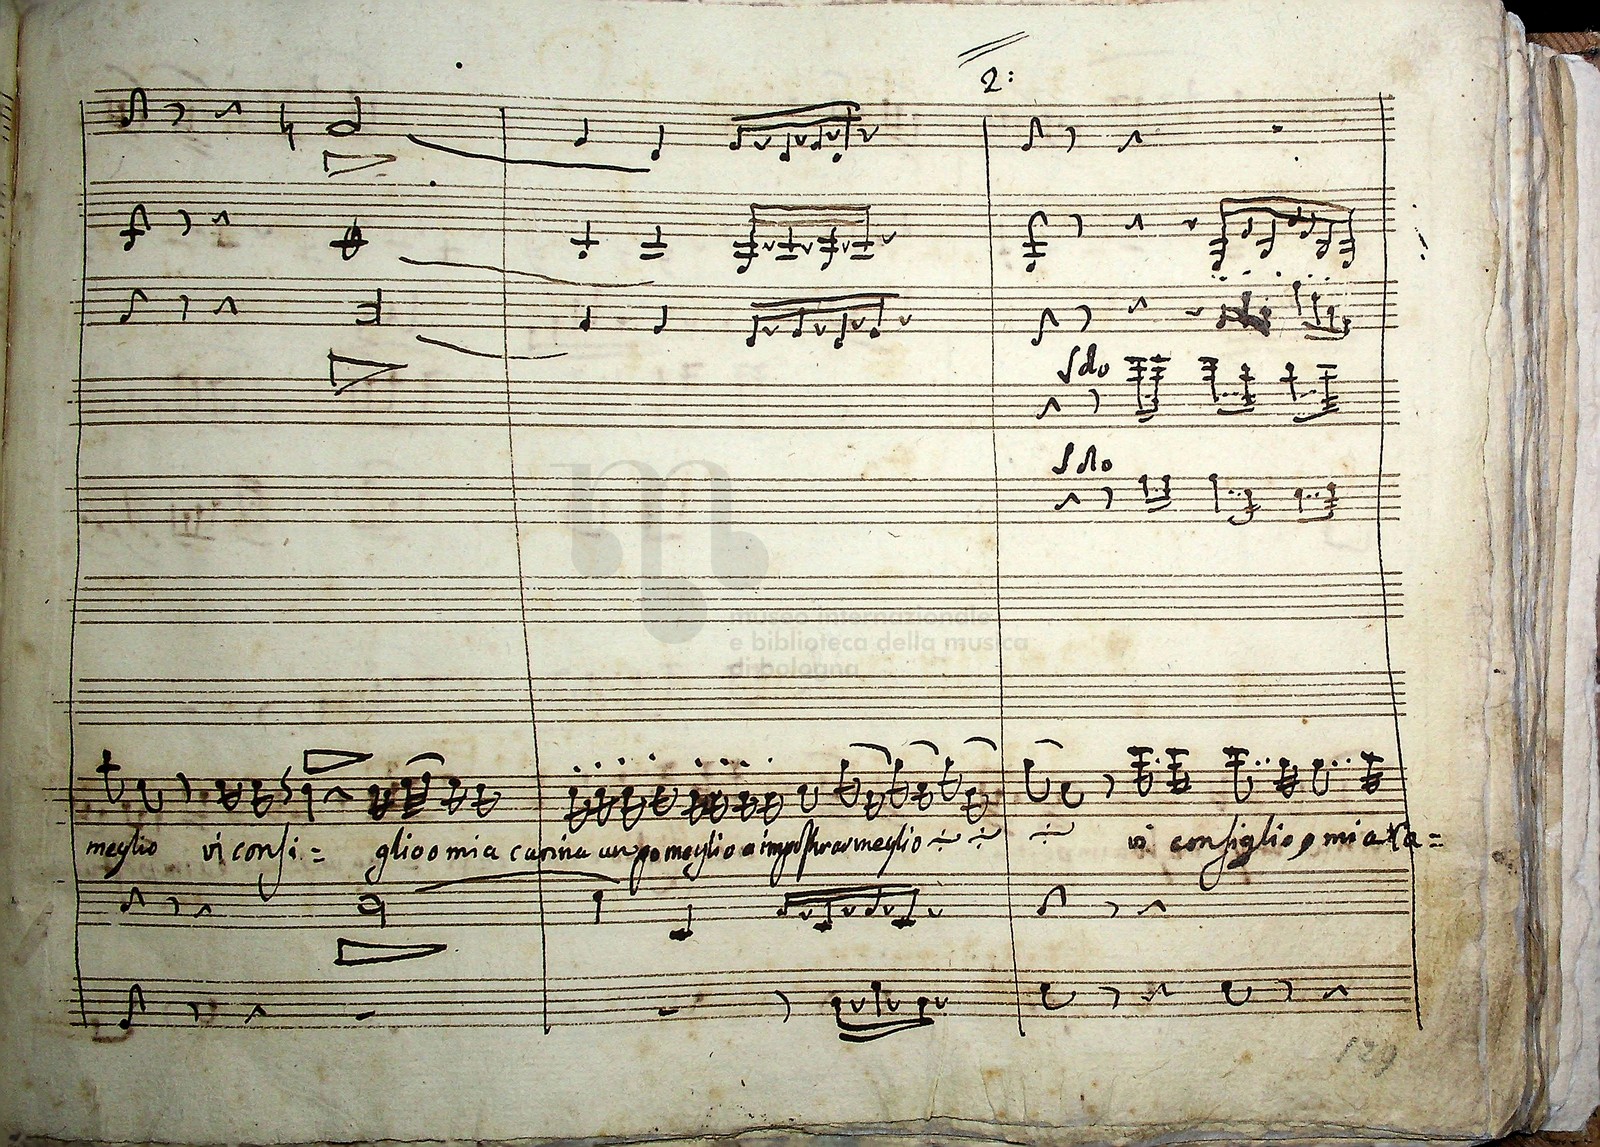 2:
Sdo
Sdo
museo internazionale
e biblioteca della musica
di bologna
meglio vi consi = glio o mia carina un po meglio a impostrar meglio vi consiglio o mia Ca =
129